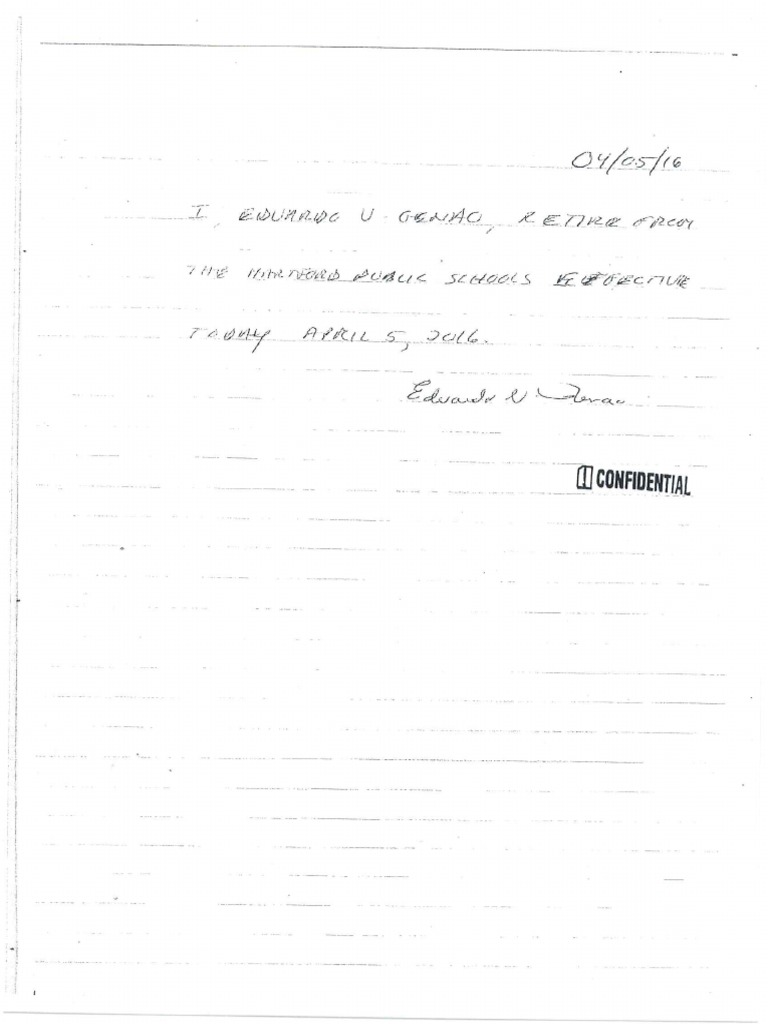 04/05/16
I, EDUARDO V. GENAO, RETIRE FROM
THE HARTFORD PUBLIC SCHOOLS EFFECTIVE
TODAY APRIL 5, 2016.
Eduardo V Genao
CONFIDENTIAL